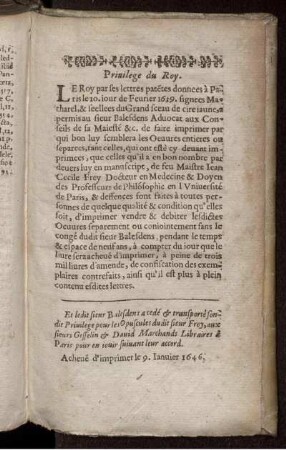 Priuilege du Roy.
LE Roy par ses lettres patétes donnees à Pa-
ris le 20. iour de Feurier 1639. signees Ma-
tharel, & seellees du Grand sceau de cire iaune, a
permis au sieur Balesdens Aduocat aux Con-
seils de sa Maiesté &c. de faire imprimer par
qui bon luy semblera les Oeuures entieres ou
separees, tant celles, qui ont esté cy deuant im-
primees, que celles qu'il a en bon nombre par
deuers luy en manuscript, de feu Maistre Iean
Cecile Frey Docteur en Medecine & Doyen
des Professeurs de Philosophie en l'Vniuersité
de Paris, & deffences sont faites à toutes per-
sonnes de quelque qualité & condition qu'elles
soit, d'imprimer vendre & debiter lesdictes
Oeuures separement ou conioinctement sans le
congé dudit sieur Balesdens, pendant le temps
& espace de neuf ans, à compter du iour que le
liure sera acheué d'imprimer, à peine de trois
mil liures d'amende, de confiscation des exem-
plaires contrefaits, ainsi qu'il est plus à plein
contenu esdites lettres.
Et ledit sieur Balesdens a cedé & transporté son-
dit Priuilege pour les Opuscules dudit sieur Frey, aux
sieurs Gesselin & Dauid Marchands Libraires à
Paris pour en iouir suiuant leur accord.
Acheué d'imprimer le 9. Ianuier 1646.